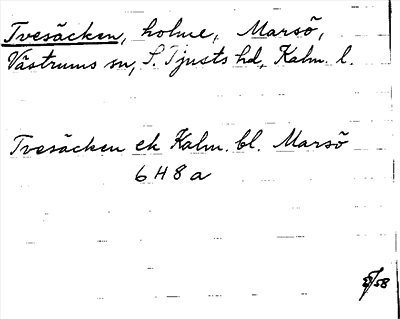 Tvesäcken, holme, Marsö,
Västrums sn, S. Tjusts hd, Kalm. l.
Tvesäcken ek Kalm. bl. Marsö
6 H 8 a
58